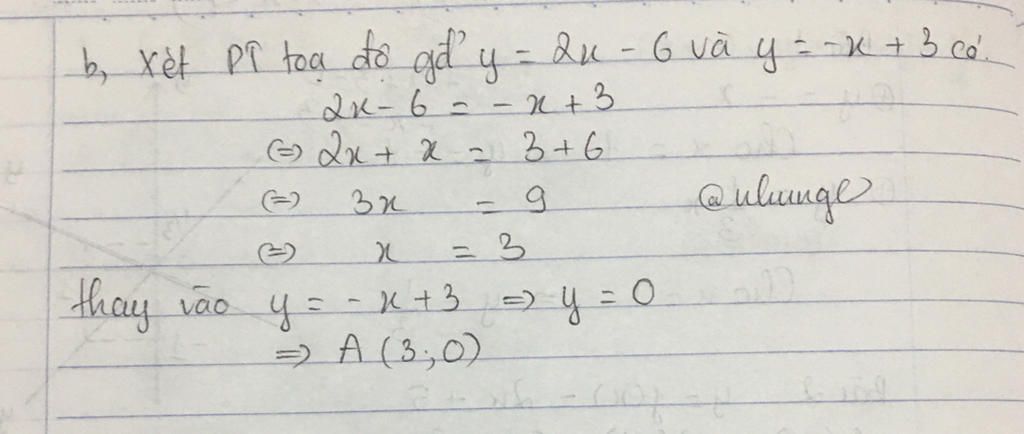 b, Xét PT toạ độ gđ y = 2x - 6 và y = -x + 3 có.
2x - 6 = -x + 3
(=) 2x + x = 3 + 6
(=) 3x = 9 @nhunge
(=) x = 3
thay vào y = -x + 3 => y = 0
=> A (3;0)